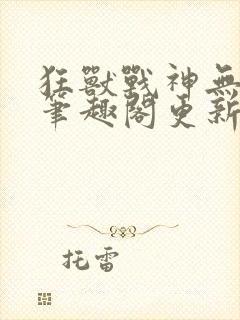 狂獸戰神無
筆趣閣更新
托雷